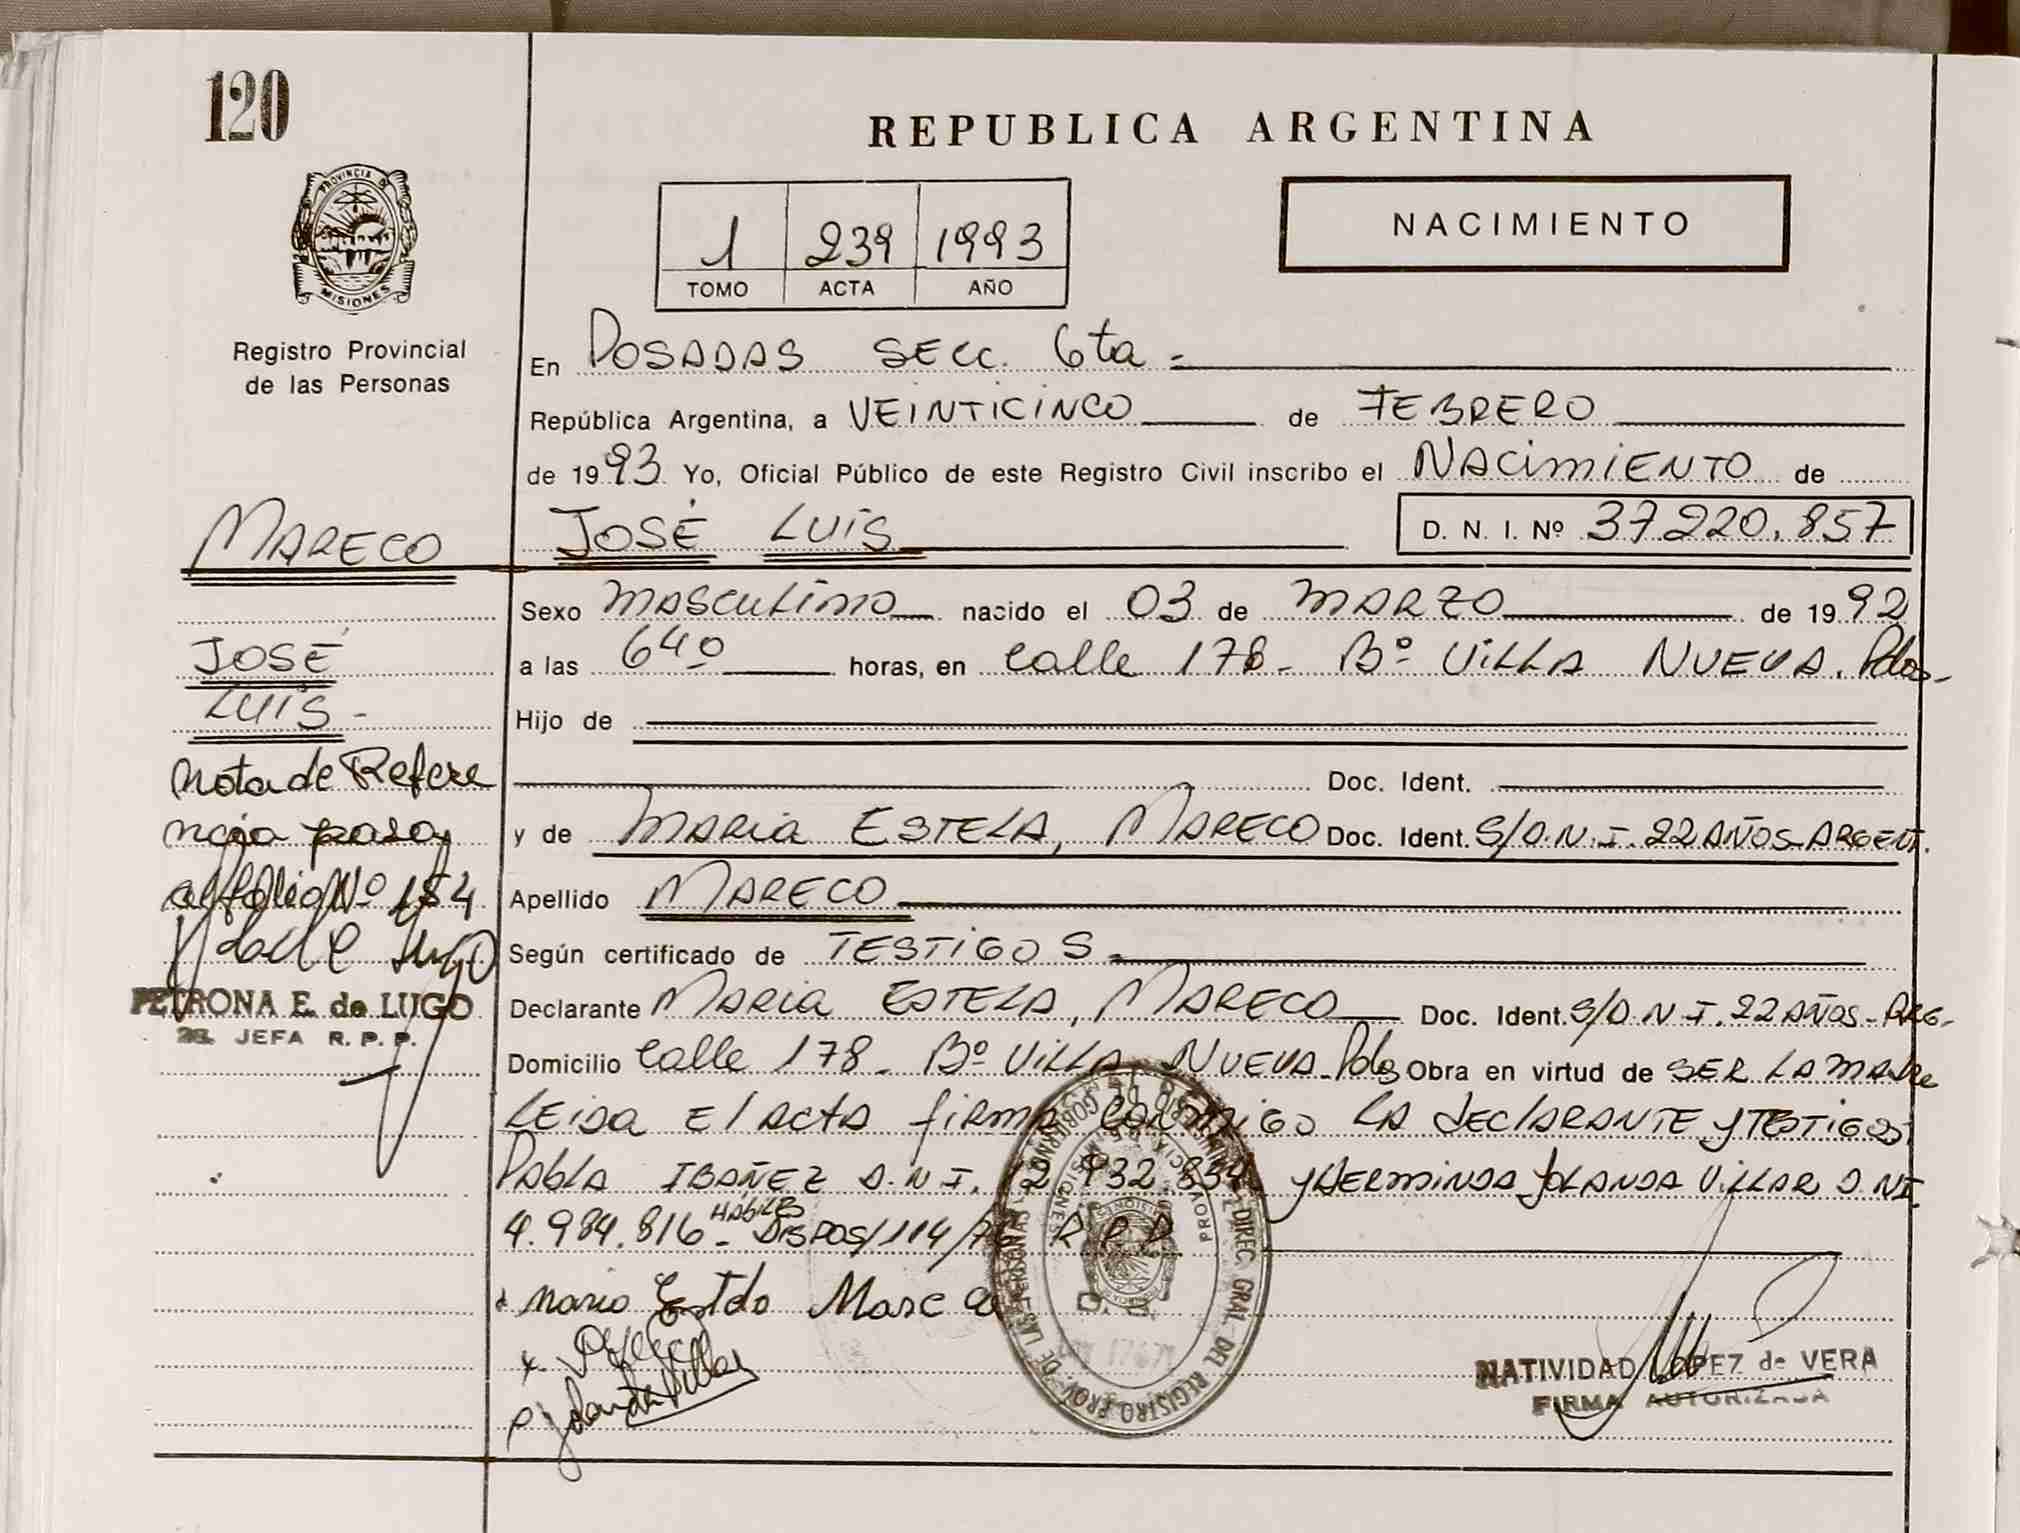 120
REPUBLICA ARGENTINA
PROVINCIA DE
MISIONES
Registro Provincial
de las Personas
1 239 1993
TOMO ACTA AÑO
NACIMIENTO
En POSADAS SECC. 6ta =
República Argentina, a VEINTICINCO de FEBRERO
de 1993 Yo, Oficial Público de este Registro Civil inscribo el NACIMIENTO de
MARECO JOSÉ LUIS D. N. I. Nº 37.220.857
Sexo MASCULINO nacido el 03 de MARZO de 1992
JOSÉ
a las 6 40 horas, en Calle 178 - Bº VILLA NUEVA. Pdas -
LUIS -
Hijo de
nota de Refere
Doc. Ident.
ncia pasa
y de MARIA ESTELA, MARECO Doc. Ident. S/D.N.I. 22 AÑOS - ARGENT.
al folio Nº 154
Apellido MARECO
Según certificado de TESTIGOS -
PETRONA E. de LUGO
JEFA R. P. P.
Declarante MARIA ESTELA, MARECO Doc. Ident. S/D.N.I. 22 AÑOS - ARG-
Domicilio Calle 178 - Bº VILLA NUEVA - Pdas Obra en virtud de SER LA MADRE
LEIDA El ACTA firma CONMIGO LA dECLARANTE y TESTIGOS
PABLA IBAÑEZ D.N.I. 12.932.834 y HERMINDA YOLANDA VILLAR D.NI.
HÁBILES
4.984.816 - DISPOS/114/76 R.P.P.
DIREC. GRAL. DEL REGISTRO PROV. DE LAS PERSONAS
NATIVIDAD LOPEZ de VERA
FIRMA AUTORIZADA